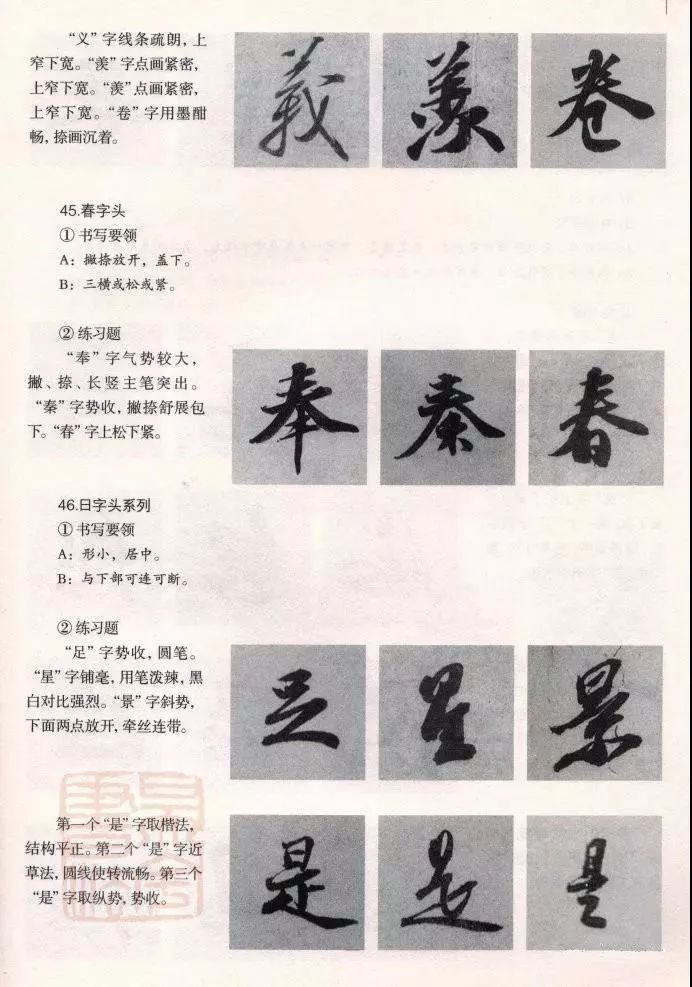 “义”字线条疏朗，上
窄下宽。“羡”字点画紧密，
上窄下宽。“羡”点画紧密，
上窄下宽。“卷”字用墨酣
畅，捺画沉着。
義 羨 卷
45.春字头
① 书写要领
A：撇捺放开，盖下。
B：三横或松或紧。
② 练习题
“奉”字气势较大，
撇、捺、长竖主笔突出。
“秦”字势收，撇捺舒展包
下。“春”字上松下紧。
奉 秦 春
46.日字头系列
① 书写要领
A：形小，居中。
B：与下部可连可断。
② 练习题
“足”字势收，圆笔。
“星”字铺毫，用笔泼辣，黑
白对比强烈。“景”字斜势，
下面两点放开，牵丝连带。
足 星 景
第一个“是”字取楷法，
结构平正。第二个“是”字近
草法，圆线使转流畅。第三个
“是”字取纵势，势收。
是 是 是